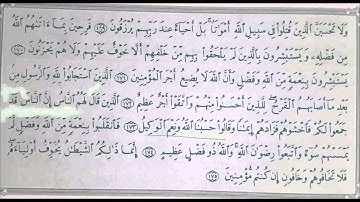 وَلَا تَحْسَبَنَّ الَّذِينَ قُتِلُوا فِي سَبِيلِ اللَّهِ أَمْوَاتًا ۚ بَلْ أَحْيَاءٌ عِندَ رَبِّهِمْ يُرْزَقُونَ ﴿١٦٩﴾ فَرِحِينَ بِمَا آتَاهُمُ اللَّهُ
مِن فَضْلِهِ وَيَسْتَبْشِرُونَ بِالَّذِينَ لَمْ يَلْحَقُوا بِهِم مِّنْ خَلْفِهِمْ أَلَّا خَوْفٌ عَلَيْهِمْ وَلَا هُمْ يَحْزَنُونَ ﴿١٧٠﴾
يَسْتَبْشِرُونَ بِنِعْمَةٍ مِّنَ اللَّهِ وَفَضْلٍ وَأَنَّ اللَّهَ لَا يُضِيعُ أَجْرَ الْمُؤْمِنِينَ ﴿١٧١﴾ الَّذِينَ اسْتَجَابُوا لِلَّهِ وَالرَّسُولِ مِن
بَعْدِ مَا أَصَابَهُمُ الْقَرْحُ ۚ لِلَّذِينَ أَحْسَنُوا مِنْهُمْ وَاتَّقَوْا أَجْرٌ عَظِيمٌ ﴿١٧٢﴾ الَّذِينَ قَالَ لَهُمُ النَّاسُ إِنَّ النَّاسَ قَدْ
جَمَعُوا لَكُمْ فَاخْشَوْهُمْ فَزَادَهُمْ إِيمَانًا وَقَالُوا حَسْبُنَا اللَّهُ وَنِعْمَ الْوَكِيلُ ﴿١٧٣﴾ فَانقَلَبُوا بِنِعْمَةٍ مِّنَ اللَّهِ وَفَضْلٍ لَّمْ
يَمْسَسْهُمْ سُوءٌ وَاتَّبَعُوا رِضْوَانَ اللَّهِ ۗ وَاللَّهُ ذُو فَضْلٍ عَظِيمٍ ﴿١٧٤﴾ إِنَّمَا ذَٰلِكُمُ الشَّيْطَانُ يُخَوِّفُ أَوْلِيَاءَهُ
فَلَا تَخَافُوهُمْ وَخَافُونِ إِن كُنتُم مُّؤْمِنِينَ ﴿١٧٥﴾